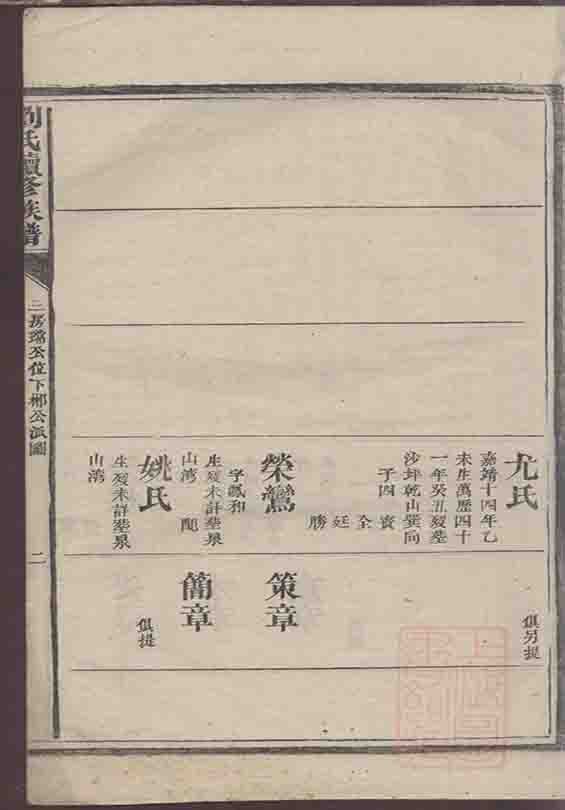 尤氏
嘉靖十四年乙
未生萬歷四十
一年癸丑歿塟
沙坪乾山巽向
子四
寳
全
廷
勝
俱另提
榮鸞
字鳳和
生歿未詳塟泉
山湾
配
策章
簡章
姚氏
生歿未詳塟泉
山湾
俱提
劉氏續修族譜
三房瑺公位下郴公派圖
二